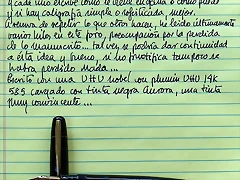 cada uno escribe como le viene en gana o como puede
y si hay caligrafía simple o sofisticada, mejor.
a repetir lo que otros hacen, he leído últimamente
varios hilos en este foro, preocupación por la perdida
de lo manuscrito... tal vez se podría dar continuidad
a ésta idea y bueno, si no fructifica tampoco se
habrá perdido nada...
Escrito con una UHU nobel con plumín UHU 14K
585 cargado con tinta negra Aurora, una tinta
muy convincente...